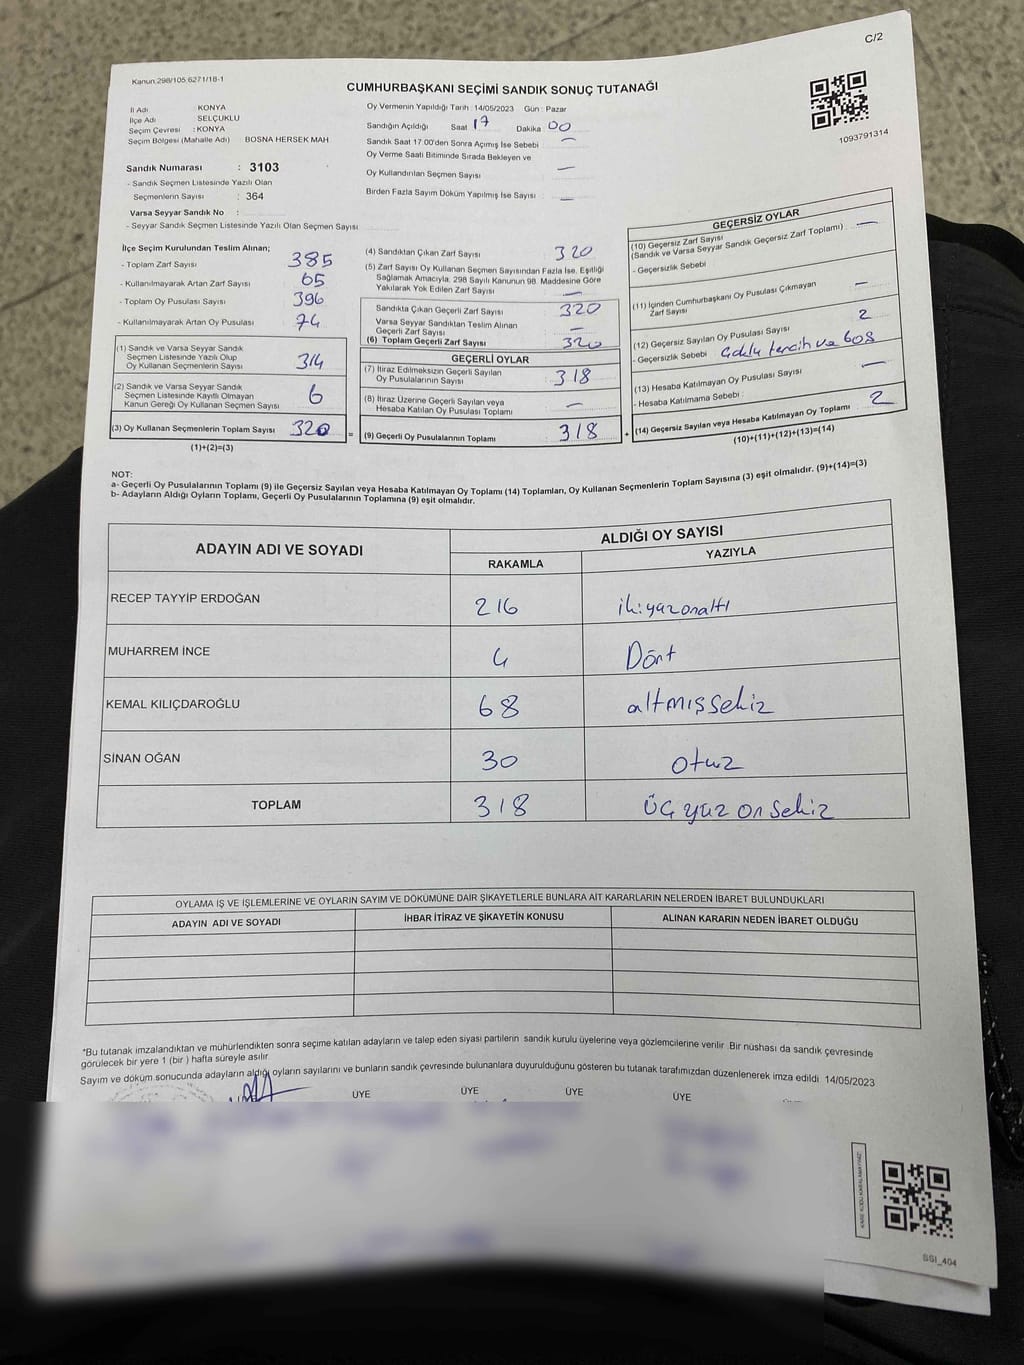 C/2
Kanun:298/105,6271/18-1
CUMHURBAŞKANI SEÇİMİ SANDIK SONUÇ TUTANAĞI
1093791314
İl Adı : KONYA
İlçe Adı : SELÇUKLU
Seçim Çevresi : KONYA
Seçim Bölgesi (Mahalle Adı) BOSNA HERSEK MAH
Sandık Numarası : 3103
- Sandık Seçmen Listesinde Yazılı Olan
Seçmenlerin Sayısı : 364
Varsa Seyyar Sandık No :
- Seyyar Sandık Seçmen Listesinde Yazılı Olan Seçmen Sayısı
Oy Vermenin Yapıldığı Tarih : 14/05/2023 Gün : Pazar
Sandığın Açıldığı Saat : 17 Dakika : 00
Sandık Saat 17.00'den Sonra Açımış İse Sebebi : —
Oy Verme Saati Bitiminde Sırada Bekleyen ve
Oy Kullandırılan Seçmen Sayısı : —
Birden Fazla Sayım Döküm Yapılmış İse Sayısı : —
İlçe Seçim Kurulundan Teslim Alınan;
- Toplam Zarf Sayısı : 385
- Kullanılmayarak Artan Zarf Sayısı : 65
- Toplam Oy Pusulası Sayısı : 396
- Kullanılmayarak Artan Oy Pusulası : 74
(1) Sandık ve Varsa Seyyar Sandık
Seçmen Listesinde Yazılı Olup
Oy Kullanan Seçmenlerin Sayısı : 314
(2) Sandık ve Varsa Seyyar Sandık
Seçmen Listesinde Kayıtlı Olmayan
Kanun Gereği Oy Kullanan Seçmen Sayısı : 6
(3) Oy Kullanan Seçmenlerin Toplam Sayısı : 320
(1)+(2)=(3)
(4) Sandıktan Çıkan Zarf Sayısı : 320
(5) Zarf Sayısı Oy Kullanan Seçmen Sayısından Fazla İse, Eşitliği
Sağlamak Amacıyla, 298 Sayılı Kanunun 98. Maddesine Göre
Yakılarak Yok Edilen Zarf Sayısı : —
Sandıkta Çıkan Geçerli Zarf Sayısı : 320
Varsa Seyyar Sandıktan Teslim Alınan
Geçerli Zarf Sayısı : —
(6) Toplam Geçerli Zarf Sayısı : 320
GEÇERLİ OYLAR
(7) İtiraz Edilmeksizin Geçerli Sayılan
Oy Pusulalarının Sayısı : 318
(8) İtiraz Üzerine Geçerli Sayılan veya
Hesaba Katılan Oy Pusulası Toplamı : —
= (9) Geçerli Oy Pusulalarının Toplamı : 318 +
GEÇERSİZ OYLAR
(10) Geçersiz Zarf Sayısı : —
(Sandık ve Varsa Seyyar Sandık Geçersiz Zarf Toplamı)
- Geçersizlik Sebebi
(11) İçinden Cumhurbaşkanı Oy Pusulası Çıkmayan
Zarf Sayısı : —
(12) Geçersiz Sayılan Oy Pusulası Sayısı : 2
- Geçersizlik Sebebi : Çoklu tercih ve boş
(13) Hesaba Katılmayan Oy Pusulası Sayısı : —
- Hesaba Katılmama Sebebi :
(14) Geçersiz Sayılan veya Hesaba Katılmayan Oy Toplamı : 2
(10)+(11)+(12)+(13)=(14)
NOT:
a- Geçerli Oy Pusulalarının Toplamı (9) ile Geçersiz Sayılan veya Hesaba Katılmayan Oy Toplamı (14) Toplamları, Oy Kullanan Seçmenlerin Toplam Sayısına (3) eşit olmalıdır. (9)+(14)=(3)
b- Adayların Aldığı Oyların Toplamı, Geçerli Oy Pusulalarının Toplamına (9) eşit olmalıdır.
ADAYIN ADI VE SOYADI ALDIĞI OY SAYISI
RAKAMLA YAZIYLA
RECEP TAYYİP ERDOĞAN 216 ikiyüzonaltı
MUHARREM İNCE 4 Dört
KEMAL KILIÇDAROĞLU 68 altmışsekiz
SİNAN OĞAN 30 otuz
TOPLAM 318 üçyüz onsekiz
OYLAMA İŞ VE İŞLEMLERİNE VE OYLARIN SAYIM VE DÖKÜMÜNE DAİR ŞİKAYETLERLE BUNLARA AİT KARARLARIN NELERDEN İBARET BULUNDUKLARI
ADAYIN ADI VE SOYADI İHBAR İTİRAZ VE ŞİKAYETİN KONUSU ALINAN KARARIN NEDEN İBARET OLDUĞU
*Bu tutanak imzalandıktan ve mühürlendikten sonra seçime katılan adayların ve talep eden siyasi partilerin sandık kurulu üyelerine veya gözlemcilerine verilir. Bir nüshası da sandık çevresinde
görülecek bir yere 1 (bir ) hafta süreyle asılır.
Sayım ve döküm sonucunda adayların aldığı oyların sayılarını ve bunların sandık çevresinde bulunanlara duyurulduğunu gösteren bu tutanak tarafımızdan düzenlenerek imza edildi 14/05/2023
ÜYE ÜYE ÜYE ÜYE
SSI_404